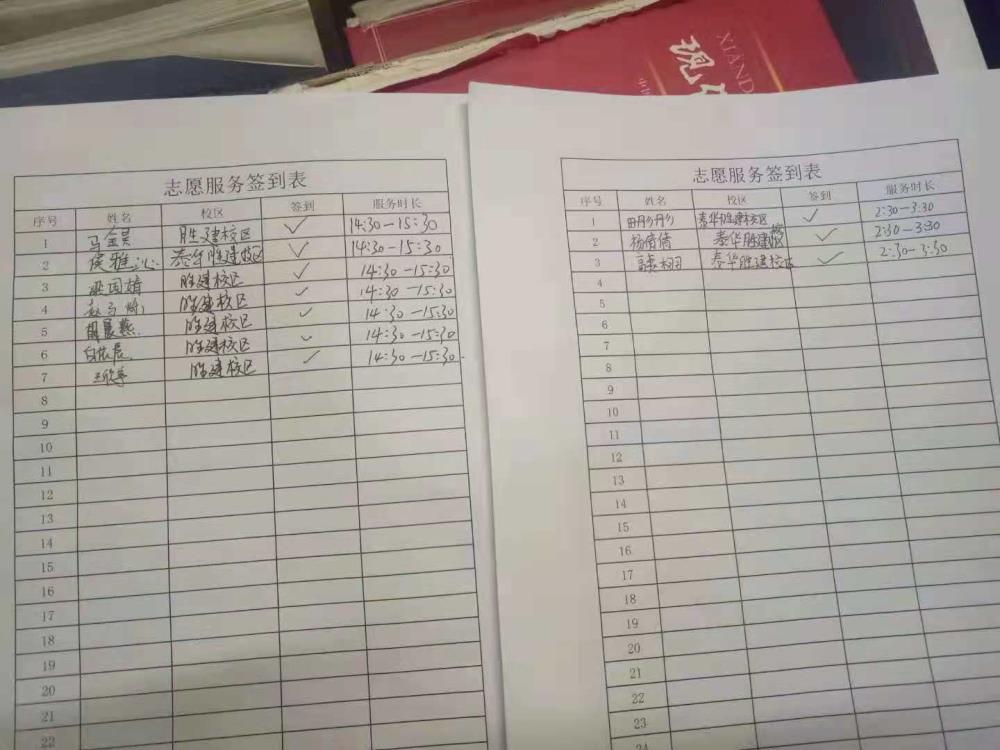 现
XIAND
志愿服务签到表
序号 姓名 校区 签到 服务时长
1 马金昊 胜建校区 ✓ 14:30-15:30
2 侯雅沁 泰华胜建校区 ✓ 14:30-15:30
3 胜建校区 ✓ 14:30-15:30
4 胜建校区 ✓ 14:30-15:30
5 胡晨燕 胜建校区 ✓ 14:30-15:30
6 白依辰 胜建校区 ✓ 14:30-15:30
7 王欣亭 胜建校区 ✓ 14:30-15:30
8
9
10
11
12
13
14
15
16
17
18
19
20
21
22
志愿服务签到表
序号 姓名 校区 签到 服务时长
1 田丹丹 泰华胜建校区 ✓ 2:30-3:30
2 杨倩倩 泰华胜建校区 ✓ 2:30-3:30
3 泰华胜建校区 ✓ 2:30-3:30
4
5
6
7
8
9
10
11
12
13
14
15
16
17
18
19
20
21
22
23
24